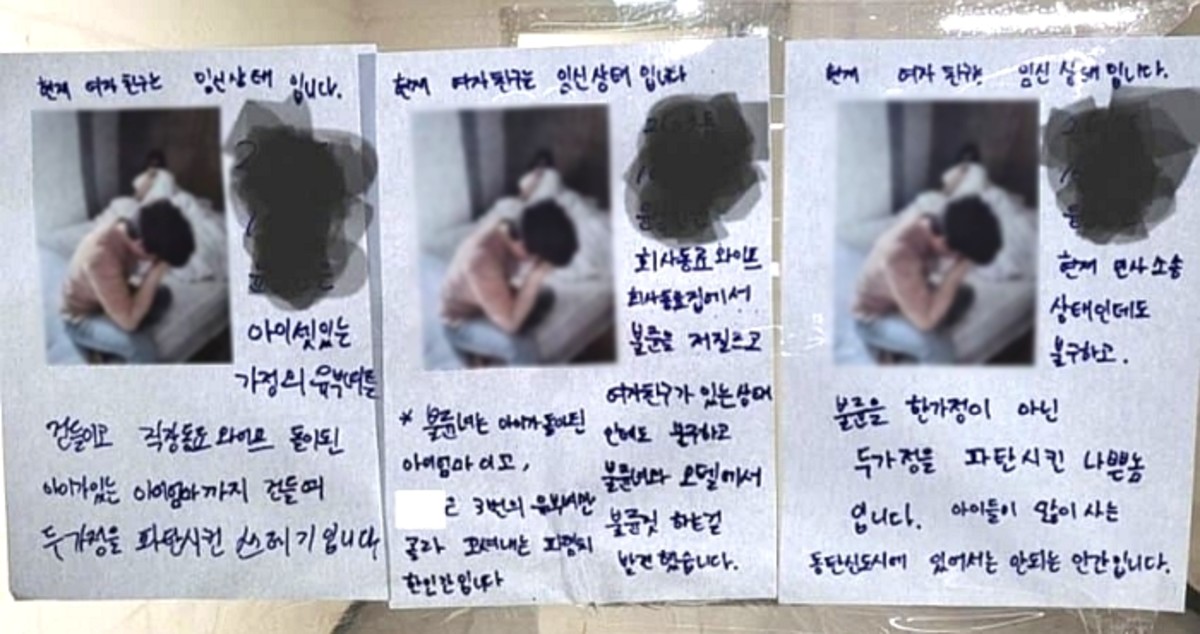 현재 여자친구는 임신상태 입니다.
아이셋있는
가정의 유부녀를
건들이고 직장동료 와이프 돌이된
아이가있는 아이엄마까지 건들여
두가정을 파탄시킨 쓰레기입니다
현재 여자친구는 임신상태 입니다
회사동료 와이프
회사동료집에서
불륜을 저질르고
여자친구가 있는상태
인데도 불구하고
불륜녀와 모텔에서
불륜짓 하는걸
발견했습니다.
* 불륜녀는 아이가 돌이된
아이엄마이고,
3번의 유부녀만
골라 꼬셔내는 파렴치
한인간입니다
현재 여자친구는 임신 상태입니다.
현재 민사소송
상태인데도
불구하고.
불륜을 한가정이 아닌
두가정을 파탄시킨 나쁜놈
입니다. 아이들이 많이 사는
동탄신도시에 있어서는 안되는 인간입니다.